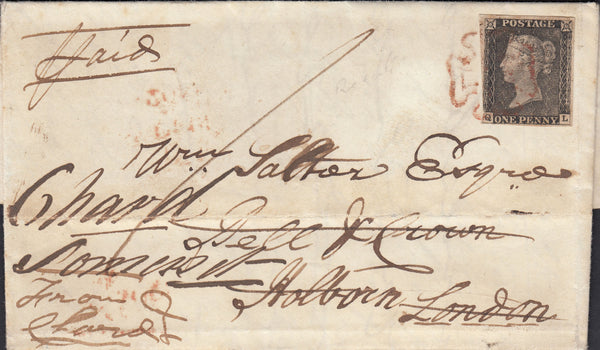 Paid
POSTAGE
ONE PENNY
L
Wm Salter Esqre
Chard
Bell & Crown
Somerset
Holborn London
From
Chard